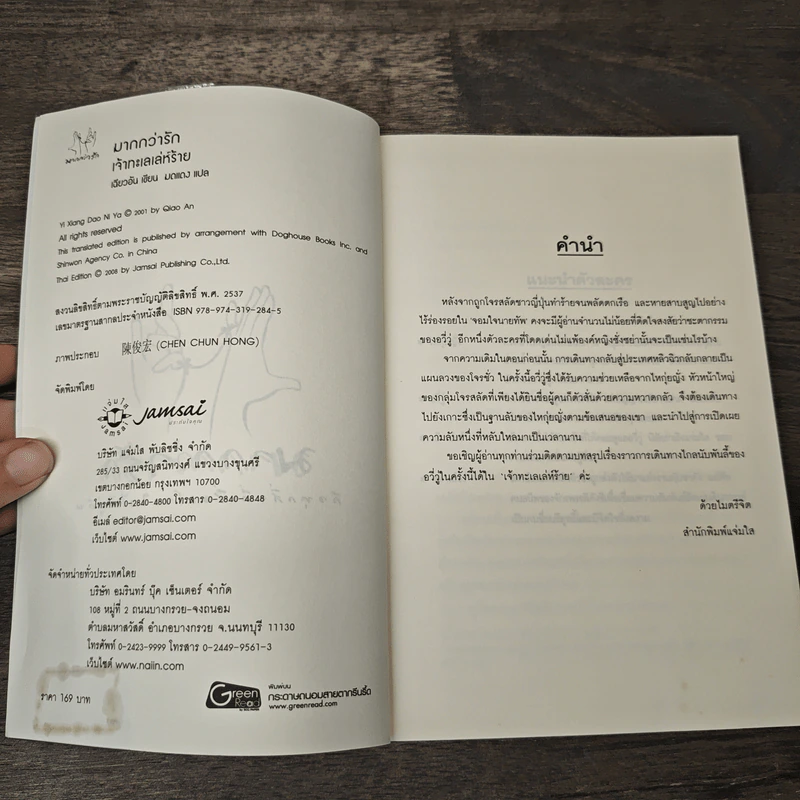 มากกว่ารัก
มากกว่ารัก
เจ้าทะเลเล่ห์ร้าย
เฉียวอัน เขียน มดแดง แปล
Yi Xiang Dao Ni Ya © 2001 by Qiao An
All rights reserved
This translated edition is published by arrangement with Doghouse Books Inc. and
Shinwon Agency Co. in China
Thai Edition © 2008 by Jamsai Publishing Co.,Ltd.
สงวนลิขสิทธิ์ตามพระราชบัญญัติลิขสิทธิ์ พ.ศ. 2537
เลขมาตรฐานสากลประจำหนังสือ ISBN 978-974-319-284-5
ภาพประกอบ 陳俊宏 (CHEN CHUN HONG)
จัดพิมพ์โดย
แจ่มใส
Jamsai
Jamsai
บริษัท แจ่มใส พับลิชชิ่ง จำกัด
285/33 ถนนจรัญสนิทวงศ์ แขวงบางขุนศรี
เขตบางกอกน้อย กรุงเทพฯ 10700
โทรศัพท์ 0-2840-4800 โทรสาร 0-2840-4848
อีเมล์ editor@jamsai.com
เว็บไซต์ www.jamsai.com
จัดจำหน่ายทั่วประเทศโดย
บริษัท อมรินทร์ บุ๊ค เซ็นเตอร์ จำกัด
108 หมู่ที่ 2 ถนนบางกรวย-จงถนอม
ตำบลมหาสวัสดิ์ อำเภอบางกรวย จ.นนทบุรี 11130
โทรศัพท์ 0-2423-9999 โทรสาร 0-2449-9561-3
เว็บไซต์ www.naiin.com
ราคา 169 บาท
Green Read
พิมพ์บน
กระดาษถนอมสายตากรีนรี้ด
www.greenread.com
คำนำ
หลังจากถูกโจรสลัดชาวญี่ปุ่นทำร้ายจนพลัดตกเรือ และหายสาบสูญไปอย่าง
ไร้ร่องรอยใน 'จอมใจนายทัพ' คงจะมีผู้อ่านจำนวนไม่น้อยที่คิดใจสงสัยว่าชะตากรรม
ของอวี่วู๋ อีกหนึ่งตัวละครที่โดดเด่นไม่แพ้องค์หญิงซั่งซย่านั้นจะเป็นเช่นไรบ้าง
จากความเดิมในตอนก่อนนั้น การเดินทางกลับสู่ประเทศหลิวฉิวกลับกลายเป็น
แผนลวงของโจรชั่ว ในครั้งนี้อวี่วู๋ซึ่งได้รับความช่วยเหลือจากไหกุ่ยญั่ง หัวหน้าใหญ่
ของกลุ่มโจรสลัดที่เพียงได้ยินชื่อผู้คนก็ตัวสั่นด้วยความหวาดกลัว จึงต้องเดินทาง
ไปยังเกาะซึ่งเป็นฐานลับของไหกุ่ยญั่งตามข้อเสนอของเขา และนำไปสู่การเปิดเผย
ความลับหนึ่งที่หลับใหลมาเป็นเวลานาน
ขอเชิญผู้อ่านทุกท่านร่วมติดตามบทสรุปเรื่องราวการเดินทางไกลนับพันลี้ของ
อวี่วู๋ในครั้งนี้ได้ใน 'เจ้าทะเลเล่ห์ร้าย' ค่ะ
ด้วยไมตรีจิต
สำนักพิมพ์แจ่มใส